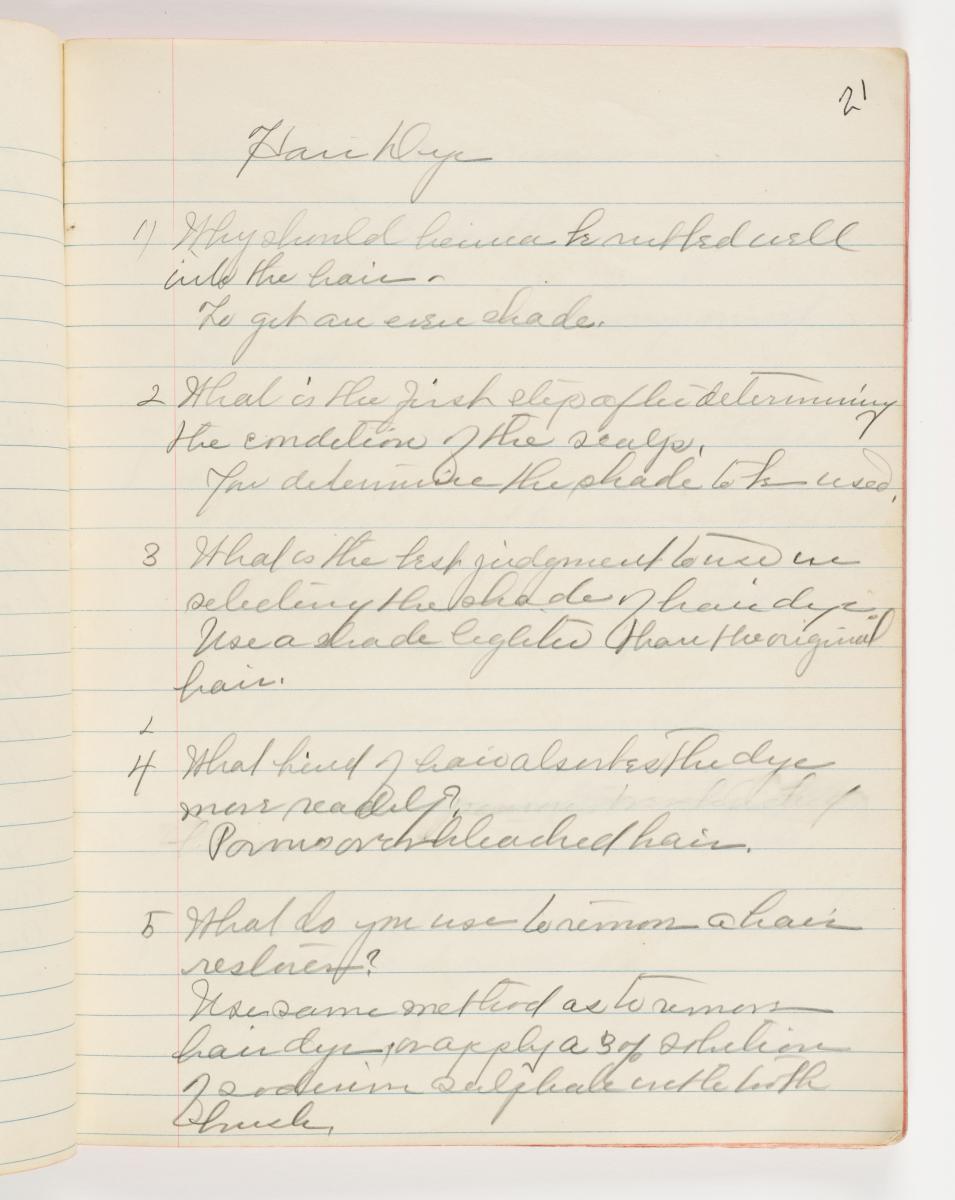 21
Hair Dye
1) Why should henna be rubbed well
into the hair -
To get an even shade.
2 What is the first step after determining
the condition of the scalp.
You determine the shade to be used.
3 What is the best judgment to use in
selecting the shade of hair dye.
Use a shade lighter than the original
hair.
4 What kind of hair absorbes the dye
more readily?
Porous over bleached hair.
5 What do you use to remove a hair
restorer?
Use same method as to remove
hair dye, or apply a 3% solution
of sodium sulphate with tooth
brush.